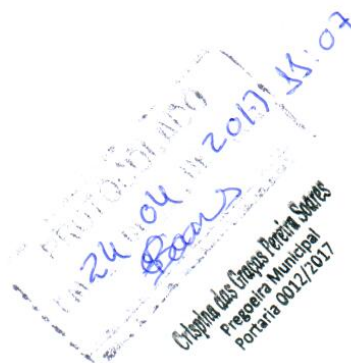 PROTOCOLADO
EM 24 04 2017 11:07
Crispina das Graças Pereira Soares
Pregoeira Municipal
Portaria 0012/2017